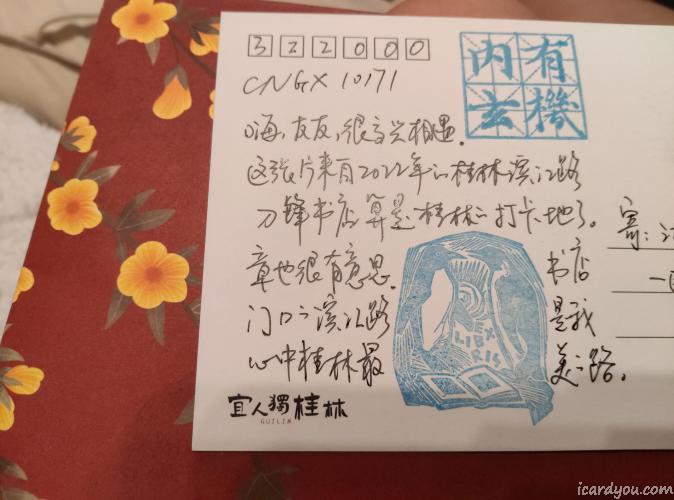 322000
CNGX 10171
内有
玄機
嗨，友友，很高兴相遇。
这张片来自2022年的桂林滨江路
刀锋书店，算是桂林的打卡地了。
章也很有意思。
书店
门口的滨江路
是我
心中桂林最
美的路。
EX
LIBRIS
寄：
宜人獨桂林
GUILIN
icardyou.com